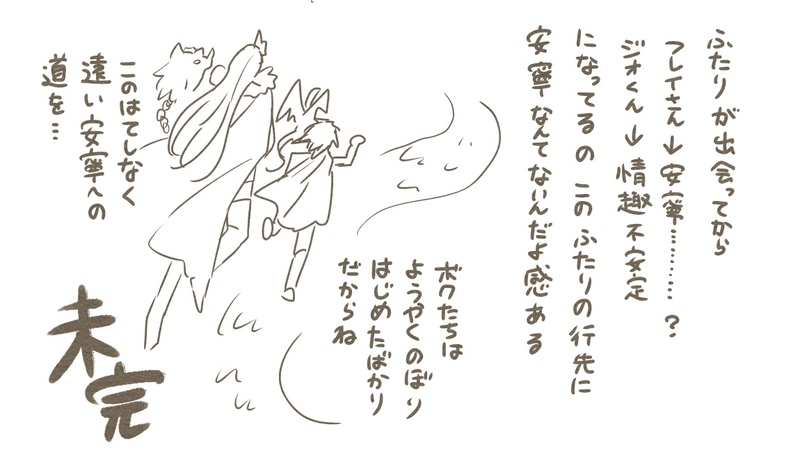 ふたりが出会ってから
フレイさん→安寧…………?
ジオくん→情趣不安定
になってるの このふたりの行先に
安寧なんてないんだよ感ある
ボクたちは
ようやくのぼり
はじめたばかり
だからね
このはてしなく
遠い安寧への
道を…
未完